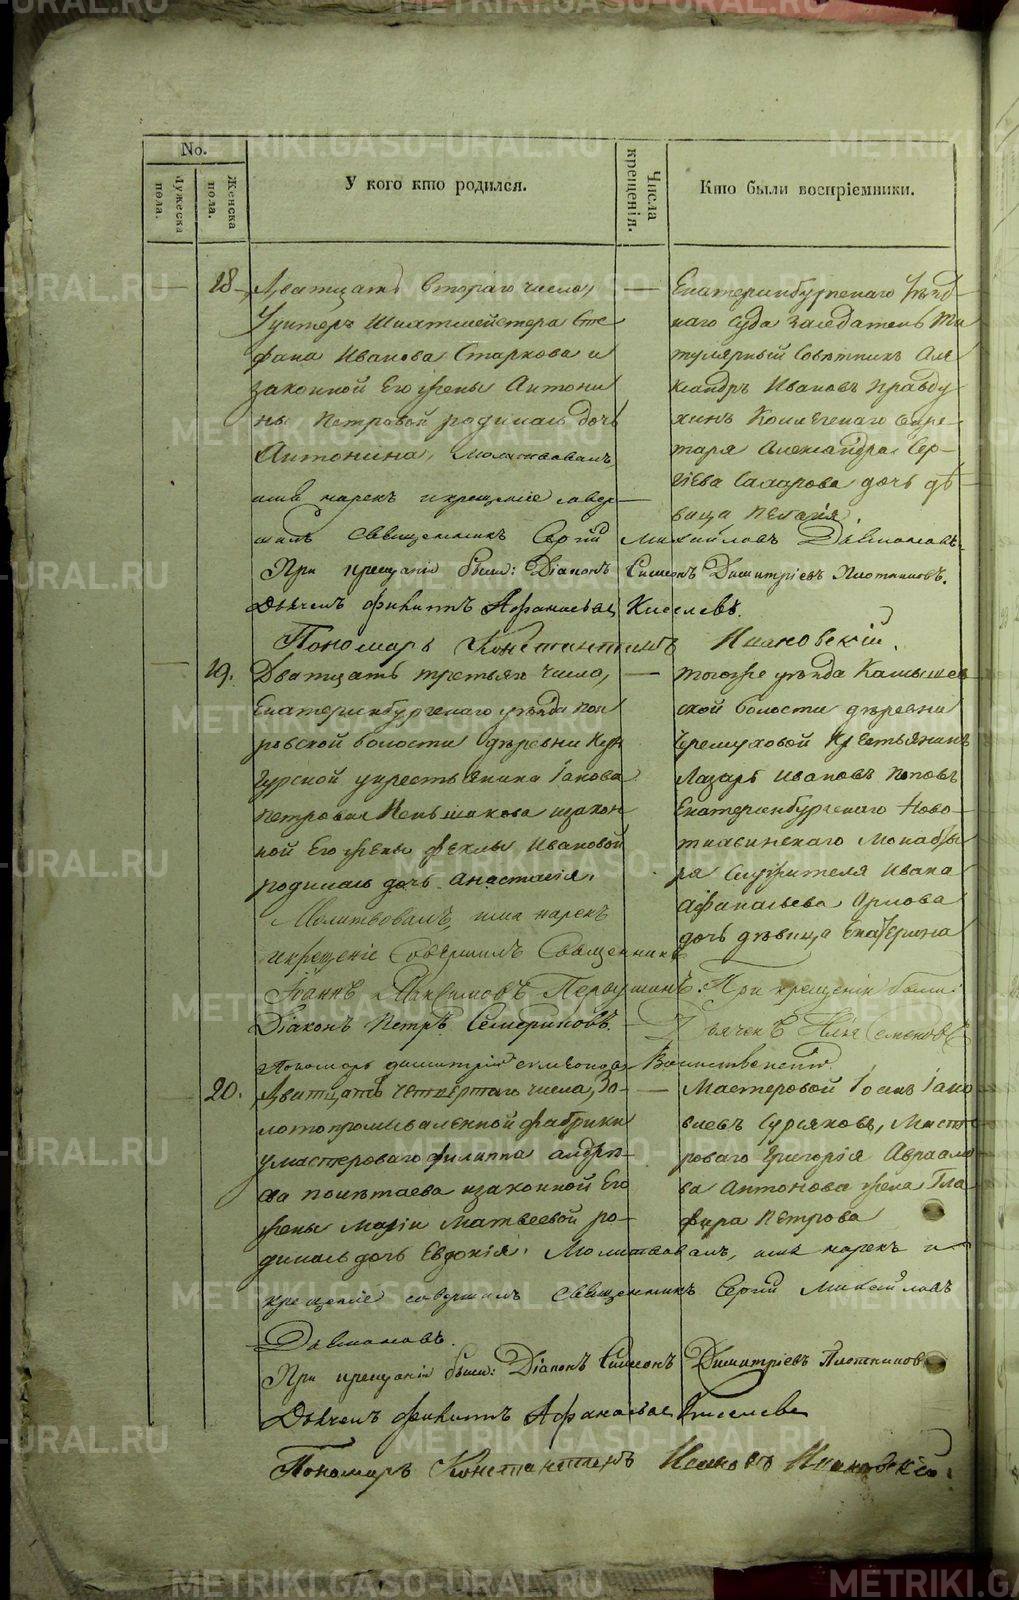 No.
Мужеска пола.
Женска пола.
У кого кто родился.
Числа крещенія.
Кто были воспріемники.
18
Дватцать втораго числа,
Унтеръ Шихтмейстера Сте
фана Иванова Старкова и
законной Его жены Антони
ны Петровой родилась дочь
Антонина, Молитвовалъ
имя нарекъ и крещеніе совер
шилъ Священникъ Сергій Михайловъ
При крещеніи были: Діаконъ Симеонъ Димитріевъ Плотниковъ.
Дьячекъ Филиппъ Афанасьевъ Киселевъ.
Пономарь Константинъ
Екатеринбургскаго Уѣзд
наго Суда Заседатель Ти
тулярный Совѣтникъ Але
ксандръ Ивановъ Правду
хинъ Коллежскаго Секре
таря Александра Сер
гіева Сахарова дочь дѣ
вица Пелагія.
19.
Дватцать третьяго числа,
Екатеринбургскаго уѣзда Пок
ровской волости деревни Кун
гурской у крестьянина Іакова
Петрова Меньшакова и закон
ной Его жены Феклы Ивановой
родилась дочь Анастасія.
Молитвовалъ, имя нарекъ
и крещеніе Совершилъ Священникъ
Іоаннъ Максимовъ Первушинъ. При крещеніи были:
Діаконъ Петръ Дьячекъ Илья Семеновъ
Пономарь Димитрій
тогоже уѣзда Камышев
ской волости деревни
Черемуховой Крестьянинъ
Лазарь Ивановъ Поповъ
Екатеринбургскаго Ново
тихвинскаго Монасты
ря Служителя Ивана
Афанасьева Орлова
дочь дѣвица Екатерина
20.
Дватцать четвертаго числа, Зо
лотопромываленной фабрики
у мастероваго Филиппа Андрѣ
ева и законной Его
жены Маріи Матвеевой ро
дилась дочь Евдокія. Молитвовалъ, имя нарекъ и
крещеніе совершилъ Священникъ Сергій Михайловъ
При крещеніи были: Діаконъ Симеонъ Димитріевъ Плотниковъ
Дьячекъ Филиппъ Афанасьевъ Киселевъ
Пономарь Константинъ
Мастеровой Іоанъ Іако
влевъ Сурсяковъ, Масте
роваго Григорія Авраамо
ва Антонова жена Гла
фира Петрова
METRIKI.GASO-URAL.RU